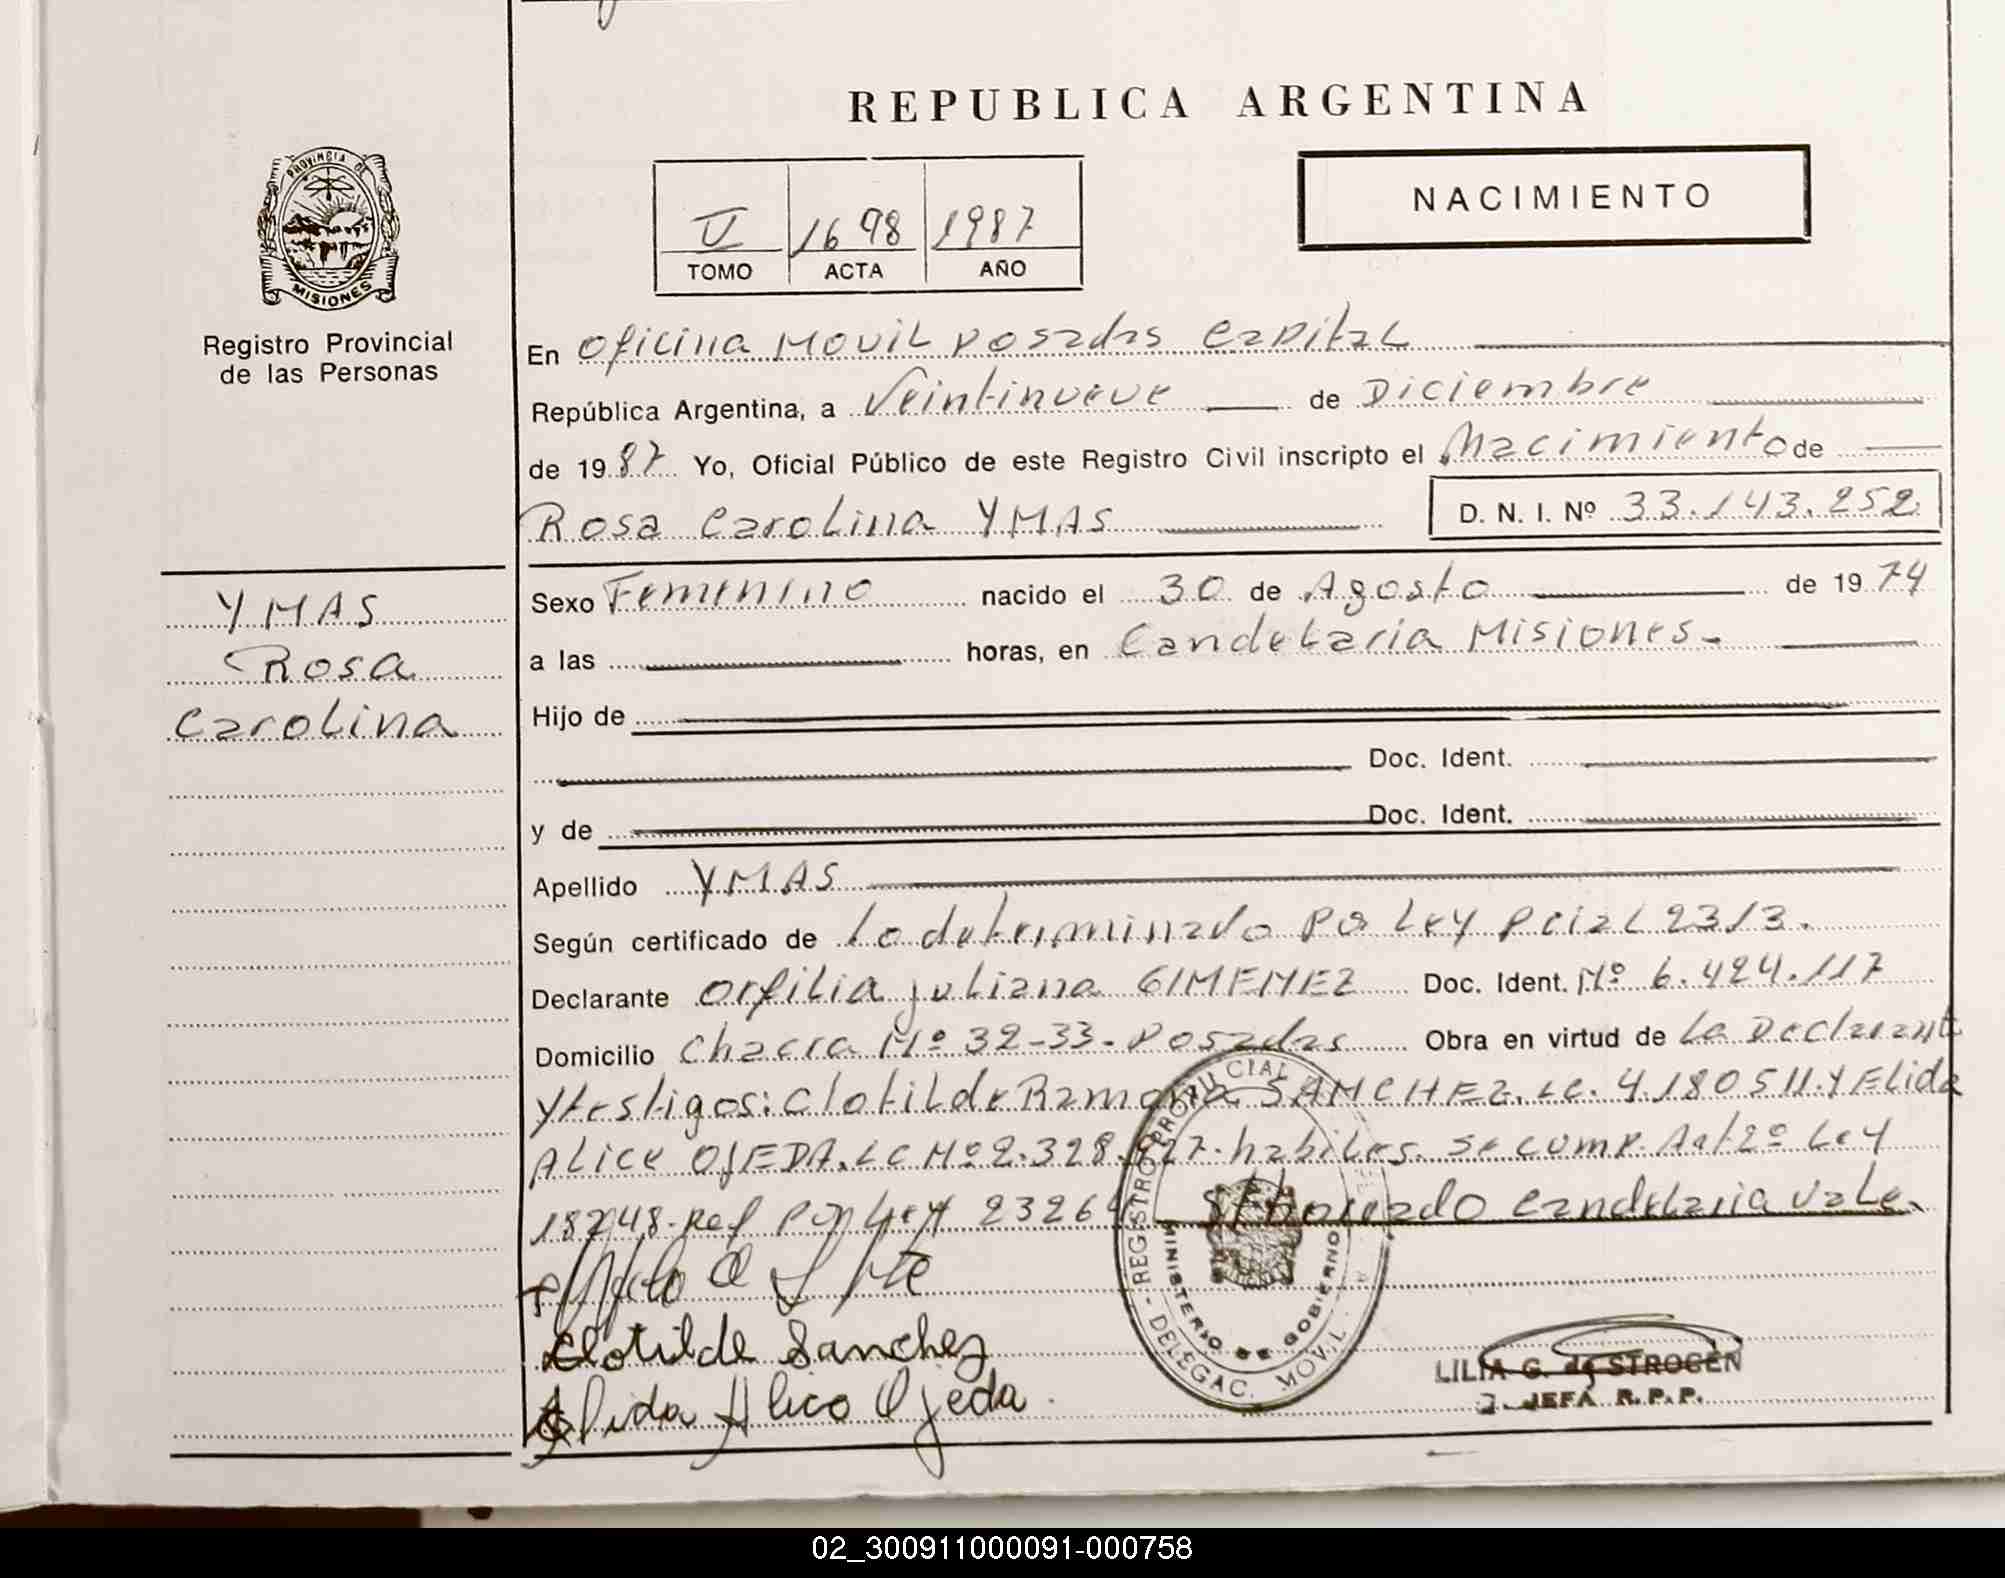 REPUBLICA ARGENTINA
PROVINCIA DE
MISIONES
Registro Provincial
de las Personas
V 1698 1987
TOMO ACTA AÑO
NACIMIENTO
En Oficina Movil Posadas Capital
República Argentina, a Veintinueve de Diciembre
de 1987 Yo, Oficial Público de este Registro Civil inscripto el Nacimiento de
Rosa Carolina YMAS D. N. I. Nº 33.143.252
YMAS
Rosa
Carolina
Sexo Femenino nacido el 30 de Agosto de 1974
a las horas, en Candelaria Misiones.
Hijo de
Doc. Ident.
y de Doc. Ident.
Apellido YMAS
Según certificado de lo determinado por Ley pcial 2313.
Declarante Orfilia Juliana GIMENEZ Doc. Ident. Nº 6.424.117
Domicilio Chacra Nº 32-33. Posadas Obra en virtud de La Declarante
y testigos: Clotilde Ramona SANCHEZ. LC. 4.180511. y Elida
ALICE OJEDA. LC Nº 2.328. habiles. se comp. Art 2º Ley
18248. Ref por Ley 23264 S/borrado Candelaria Vale.
Clotilde Sanchez
Elida Alice Ojeda.
REGISTRO PROVINCIAL
MINISTERIO DE GOBIERNO
- DELEGAC. MOVIL -
LILIA G. de STROGEN
JEFA R.P.P.
02_300911000091-000758